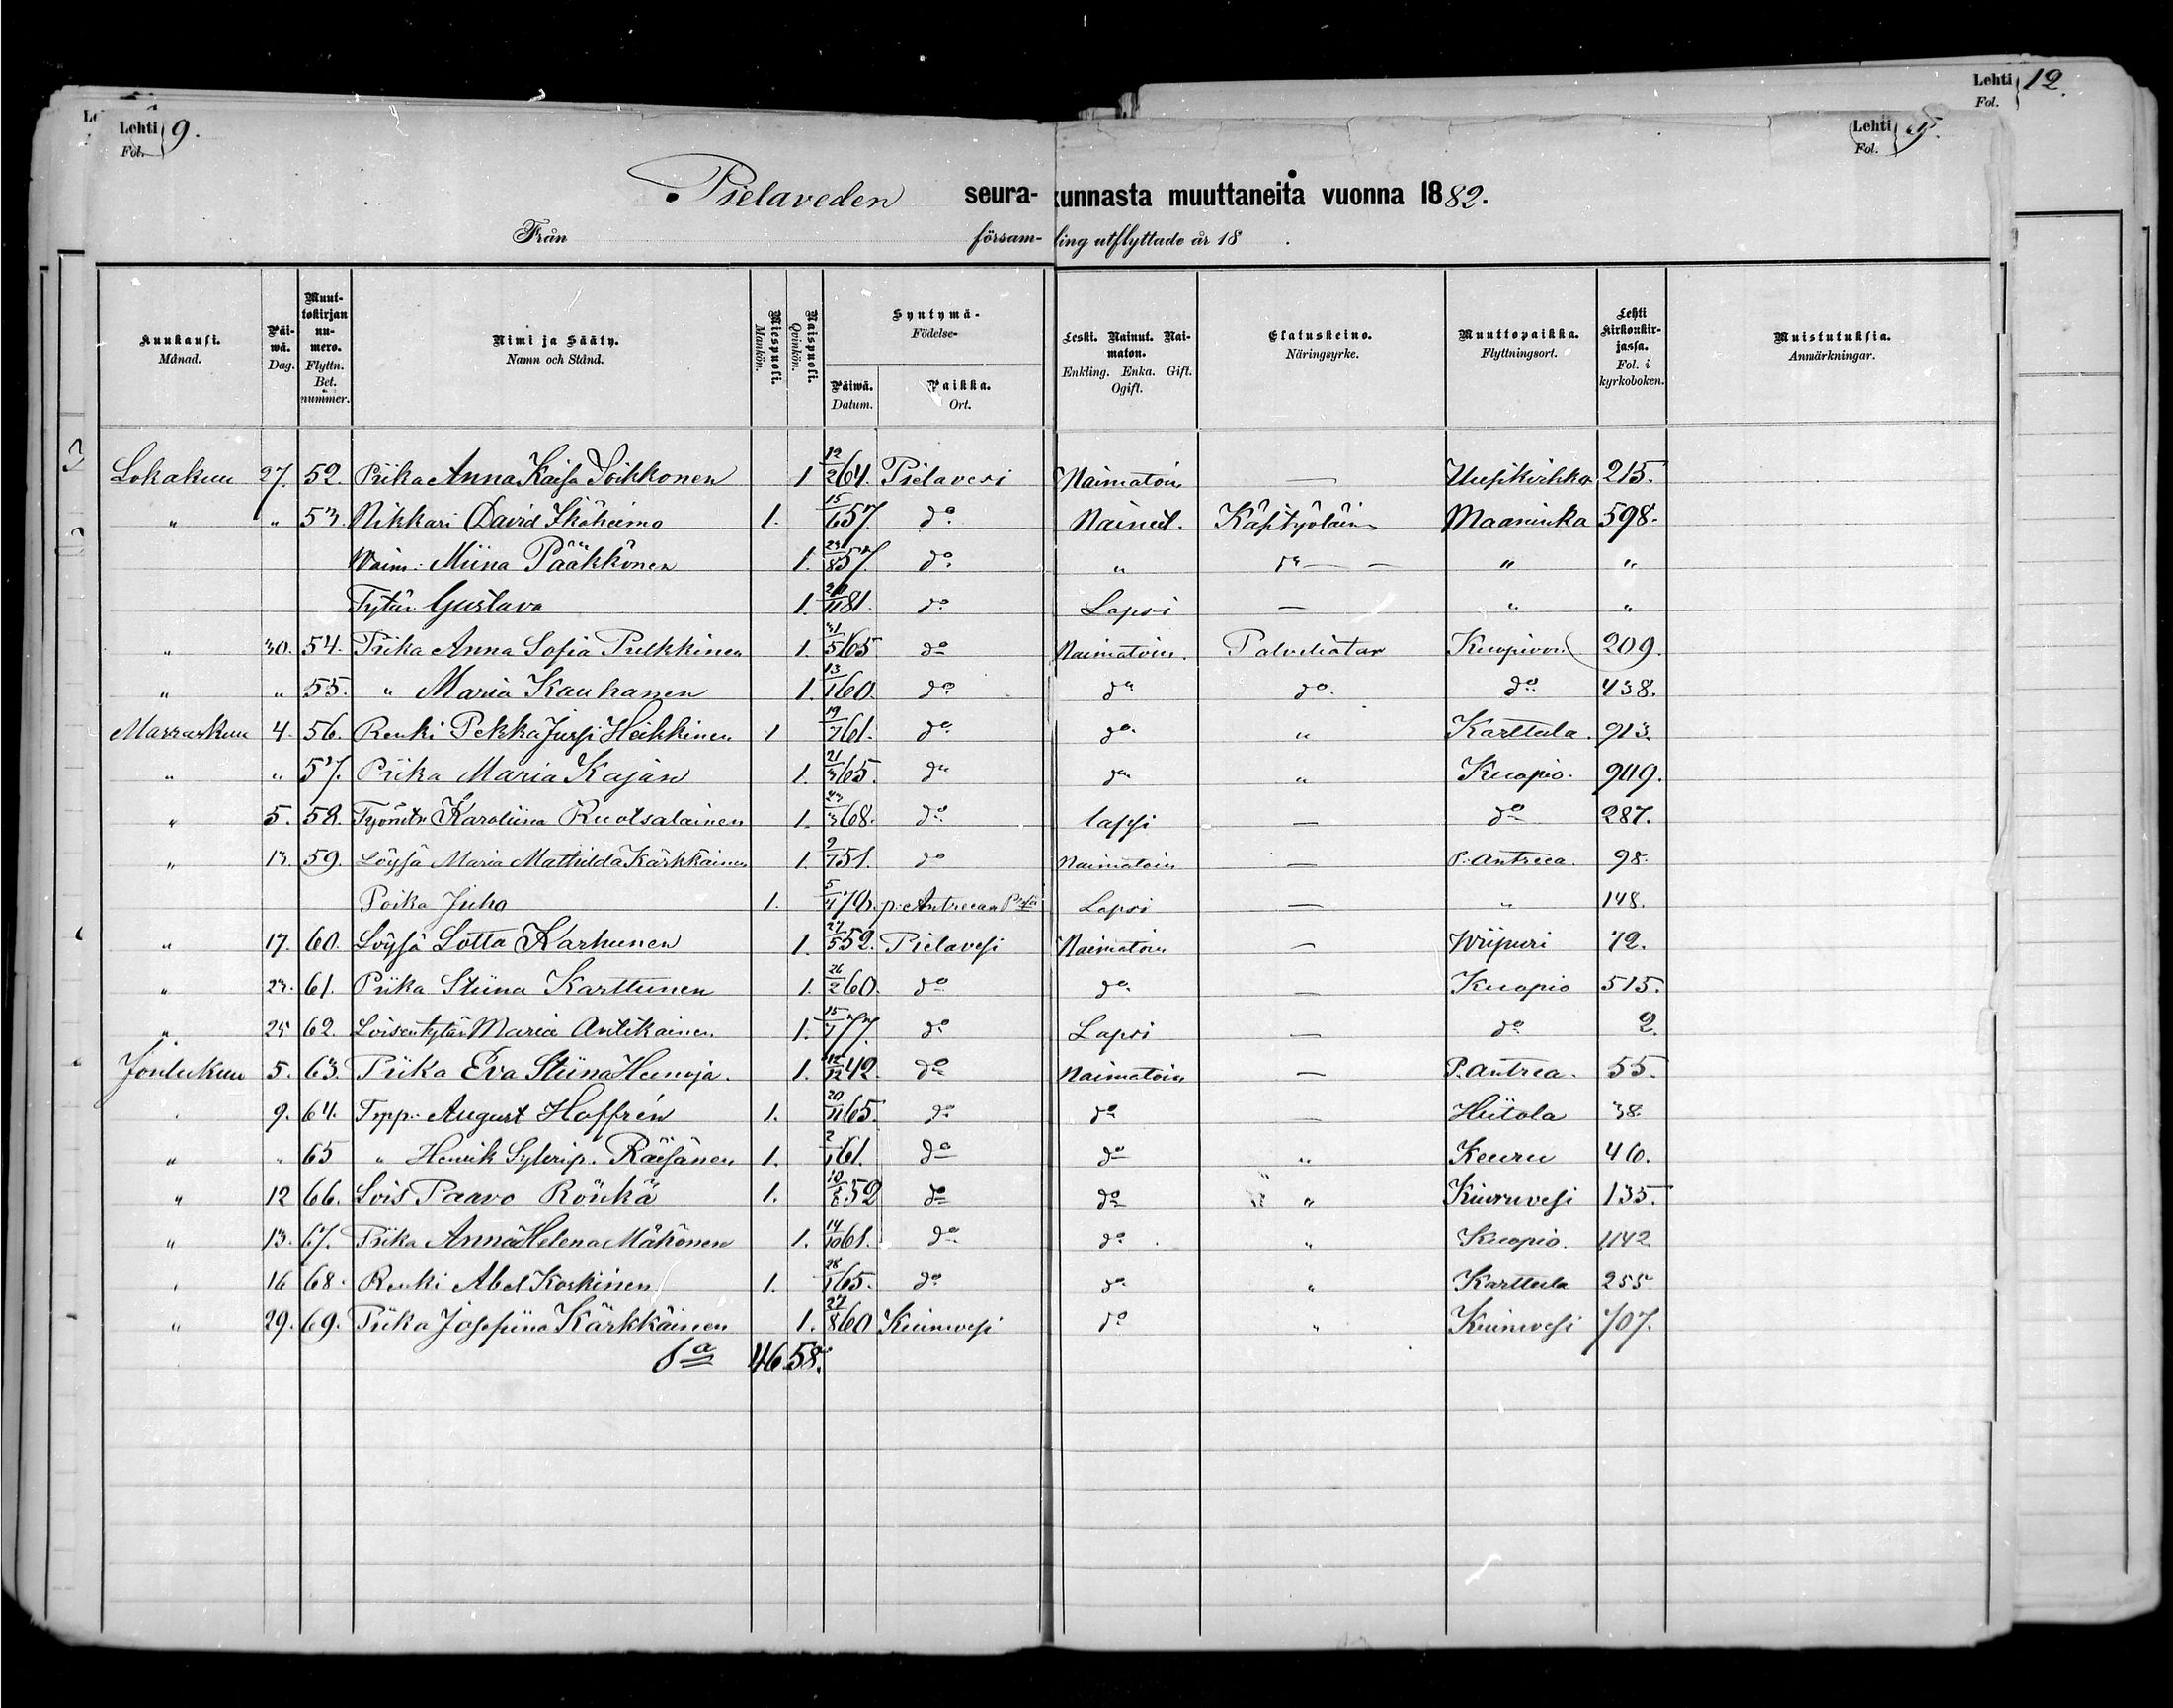 Lehti 9.
Fol.
Lehti 9.
Fol.
Lehti 12.
Fol.
Pielaveden seurakunnasta muuttaneita vuonna 1882.
Från församling utflyttade år 18 .
Kuukausi. Månad. Päiwä. Dag. Muuttokirjan numero. Flyttn. Bet. nummer. Nimi ja Sääty. Namn och Stånd. Miespuoli. Mankön. Naispuoli. Qvinkön. Syntymä- Födelse- Päiwä. Datum. Paikka. Ort. Leski. Nainut. Naimaton. Enkling. Enka. Gift. Ogift. Elatuskeino. Näringsyrke. Muuttopaikka. Flyttningsort. Lehti kirkonkirjassa. Fol. i kyrkoboken. Muistutuksia. Anmärkningar.
Lokakuu 27. 52. Piika Anna Kaisa Soikkonen 1 12/2 64. Pielavesi Naimatoin — Uusikirkko 215.
" " 53. Nikkari David Sköheimo 1. 15/1 57. do Nainut. Käsityöläin Maaninka 598.
Waim: Miina Pääkkönen 1. 29/8 57. do " do — " "
Tytär Gustava 1. /11 81. do Lapsi — " "
" 30. 54. Piika Anna Sofia Pulkkinen 1. 31/5 65 do Naimatoin. Palveliatar Kuopion 209.
" " 55. " Maria Kauhanen 1. 13/1 60. do do do. do 438.
Marraskuu 4. 56. Renki Pekka Jussi Heikkinen 1 19/7 61. do do. " Karttula. 913.
" " 57. Piika Maria Kajan 1. 21/3 65. do do " Kuopio. 909.
" 5. 58. Työmtr Karoliina Ruotsalainen 1. 23/3 68. do lapsi — do 287.
" 13. 59. Löysä Maria Mathilda Kärkkäinen 1. 2/7 51. do Naimatoin — P. Antrea. 98.
Poika Juho 1. 5/1 78. p. Antrean Lapsi — " 148.
" 17. 60. Löysä Lotta Karhunen 1. 27/5 52. Pielavesi Naimatoin — Wiipuri 72.
" 23. 61. Piika Stiina Karttunen 1. 26/2 60. do do. — Kuopio 515.
" 25 62. Loisentytär Maria Antikainen 1. 15/7 77. do Lapsi — do 2.
Joulukuu 5. 63. Piika Eva Stiina Heinoja. 1. 12/12 42. do Naimatoin — P. Antrea. 55.
" 9. 64. Tmpp: August Hoffrén 1. 20/11 65. do do — Hiitola 38.
" " 65 " Henrik Sylverip. Räisänen 1. 2/1 61. do do " Keuru 46.
" 12 66. Lois Paavo Rönkä 1. 10/6 52 do do " Kiuruvesi 135.
" 13. 67. Piika Anna Helena Mähönen 1. 14/10 61. do do " Kuopio. 1142
" 16 68. Renki Abel Koskinen 1. 28/1 65. do do " Karttula 255
" 29. 69. Piika Josefiina Kärkkäinen 1. 27/8 60 Kiuruvesi do " Kiuruvesi 707.
Sa 46 58.